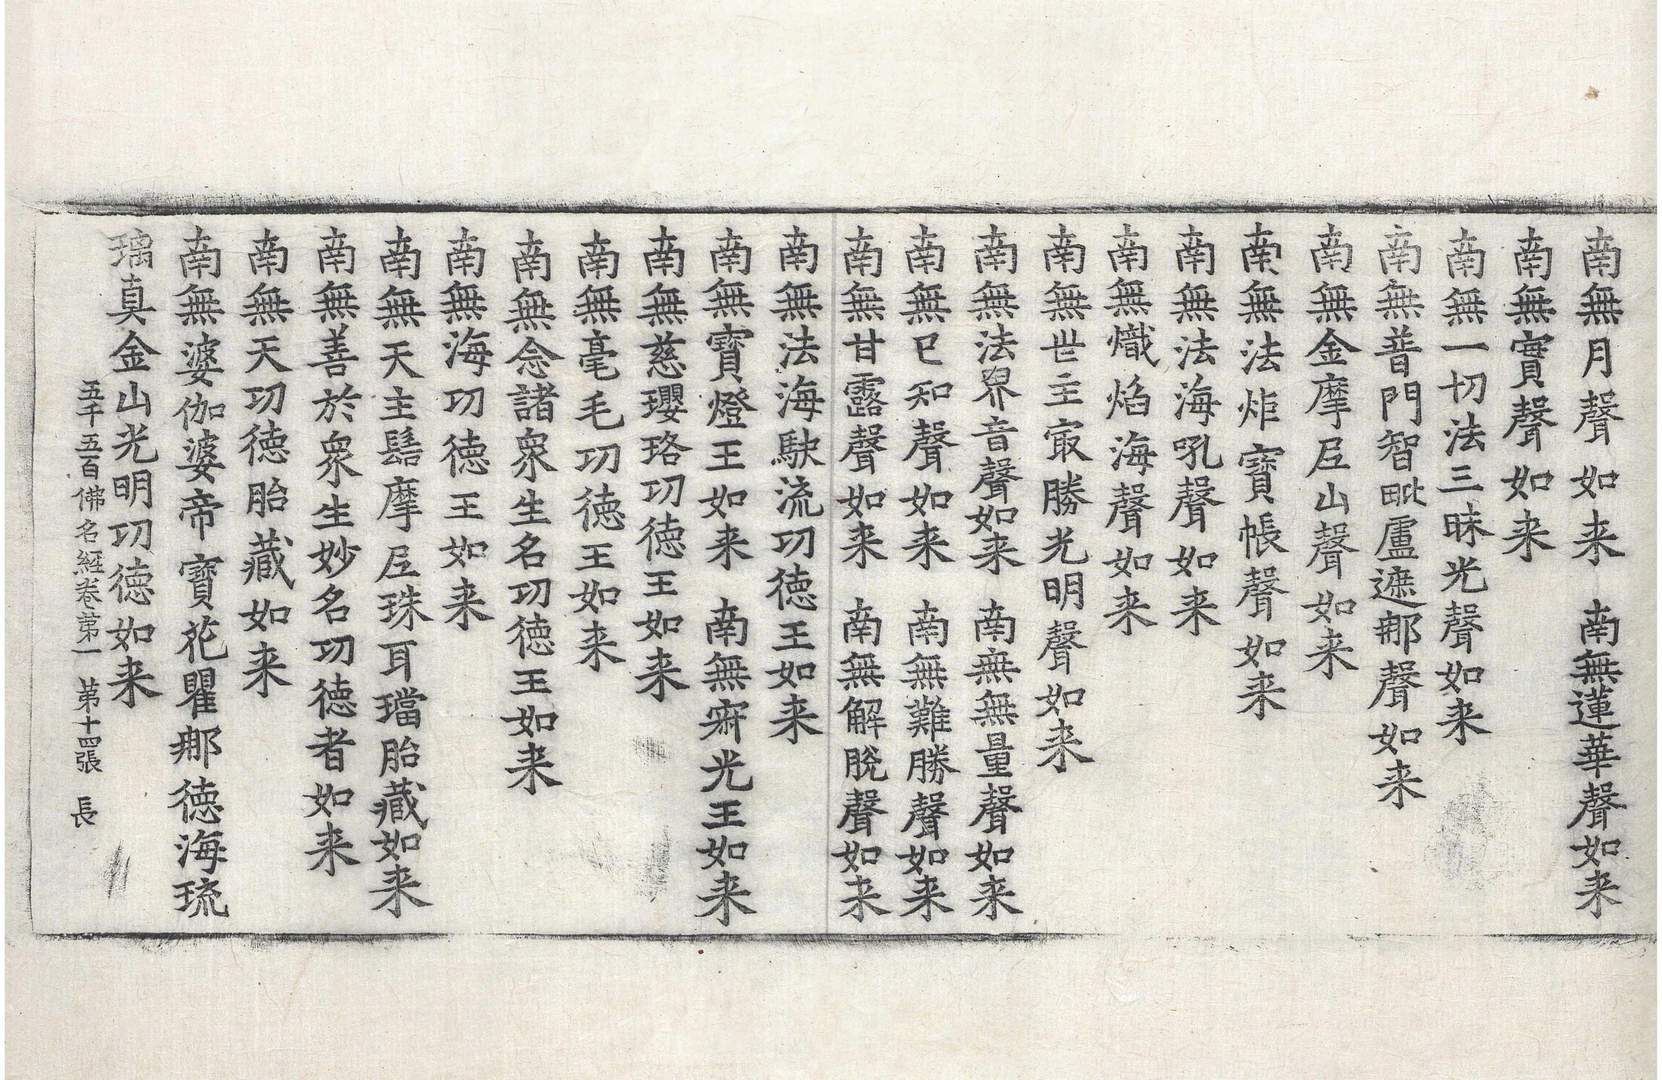 南無月聲如来　南無蓮華聲如来
南無實聲如来
南無一切法三昧光聲如来
南無普門智毗盧遮那聲如来
南無金摩尼山聲如来
南無法炸寶帳聲如来
南無法海吼聲如来
南無熾焰海聲如来
南無世主㝡勝光明聲如来
南無法界音聲如来　南無無量聲如来
南無已知聲如来　南無難勝聲如来
南無甘露聲如来　南無解脫聲如来
南無法海駃流功德王如来
南無寶燈王如来　南無寂光王如来
南無慈瓔珞功德王如来
南無毫毛功德王如来
南無念諸衆生名功德王如来
南無海功德王如来
南無天主髻摩尼珠耳璫胎藏如来
南無善於衆生妙名功德者如来
南無天功德胎藏如来
南無婆伽婆帝寶花瞿那德海琉
璃真金山光明功德如来
五千五百佛名經卷第一　第十四張　長